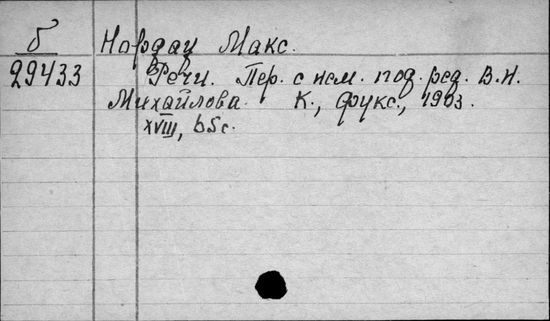 б
Нордау Макс.
29433
Речи. Пер. с нем. под. ред. В.И.
Михайлова. К., Фукс., 1903.
XVIII, 65с.